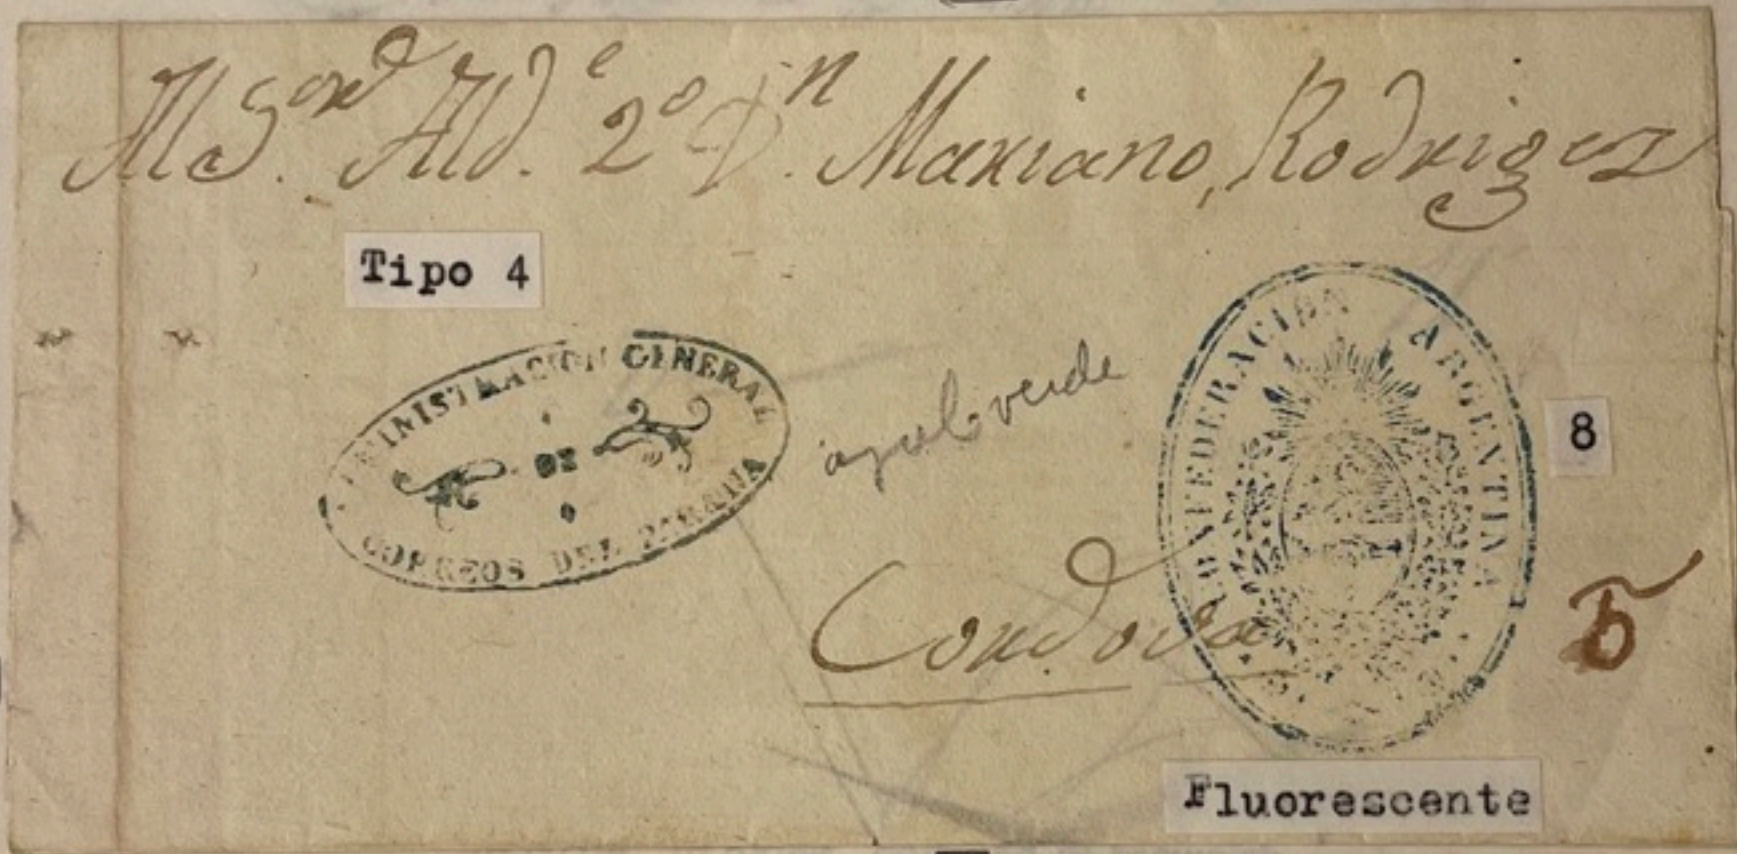 Al Sor. Ald.e 2o Dn. Mariano, Rodriguez
Tipo 4
ADMINISTRACION GENERAL
DE
CORREOS DEL PARANA
azul-verde
CONFEDERACION ARGENTINA
8
Cordova
5
Fluorescente